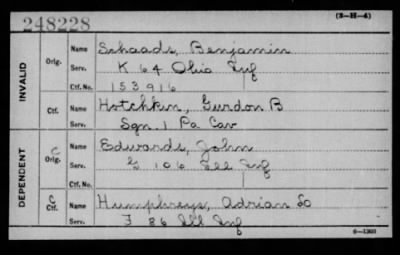 248228 (3-H-4)
INVALID
Orig. Name Schaads, Benjamin
Serv. K 64 Ohio Inf
Ctf. No. 153916
Ctf. Name Hotchkin, Gurdon B
Serv. Sgn. 1 Pa Cav
DEPENDENT
C Orig. Name Edwards, John
Serv. G 106 Ill Inf
Ctf. No.
C Ctf. Name Humphreys, Adrian
Serv. F 86 Ill Inf